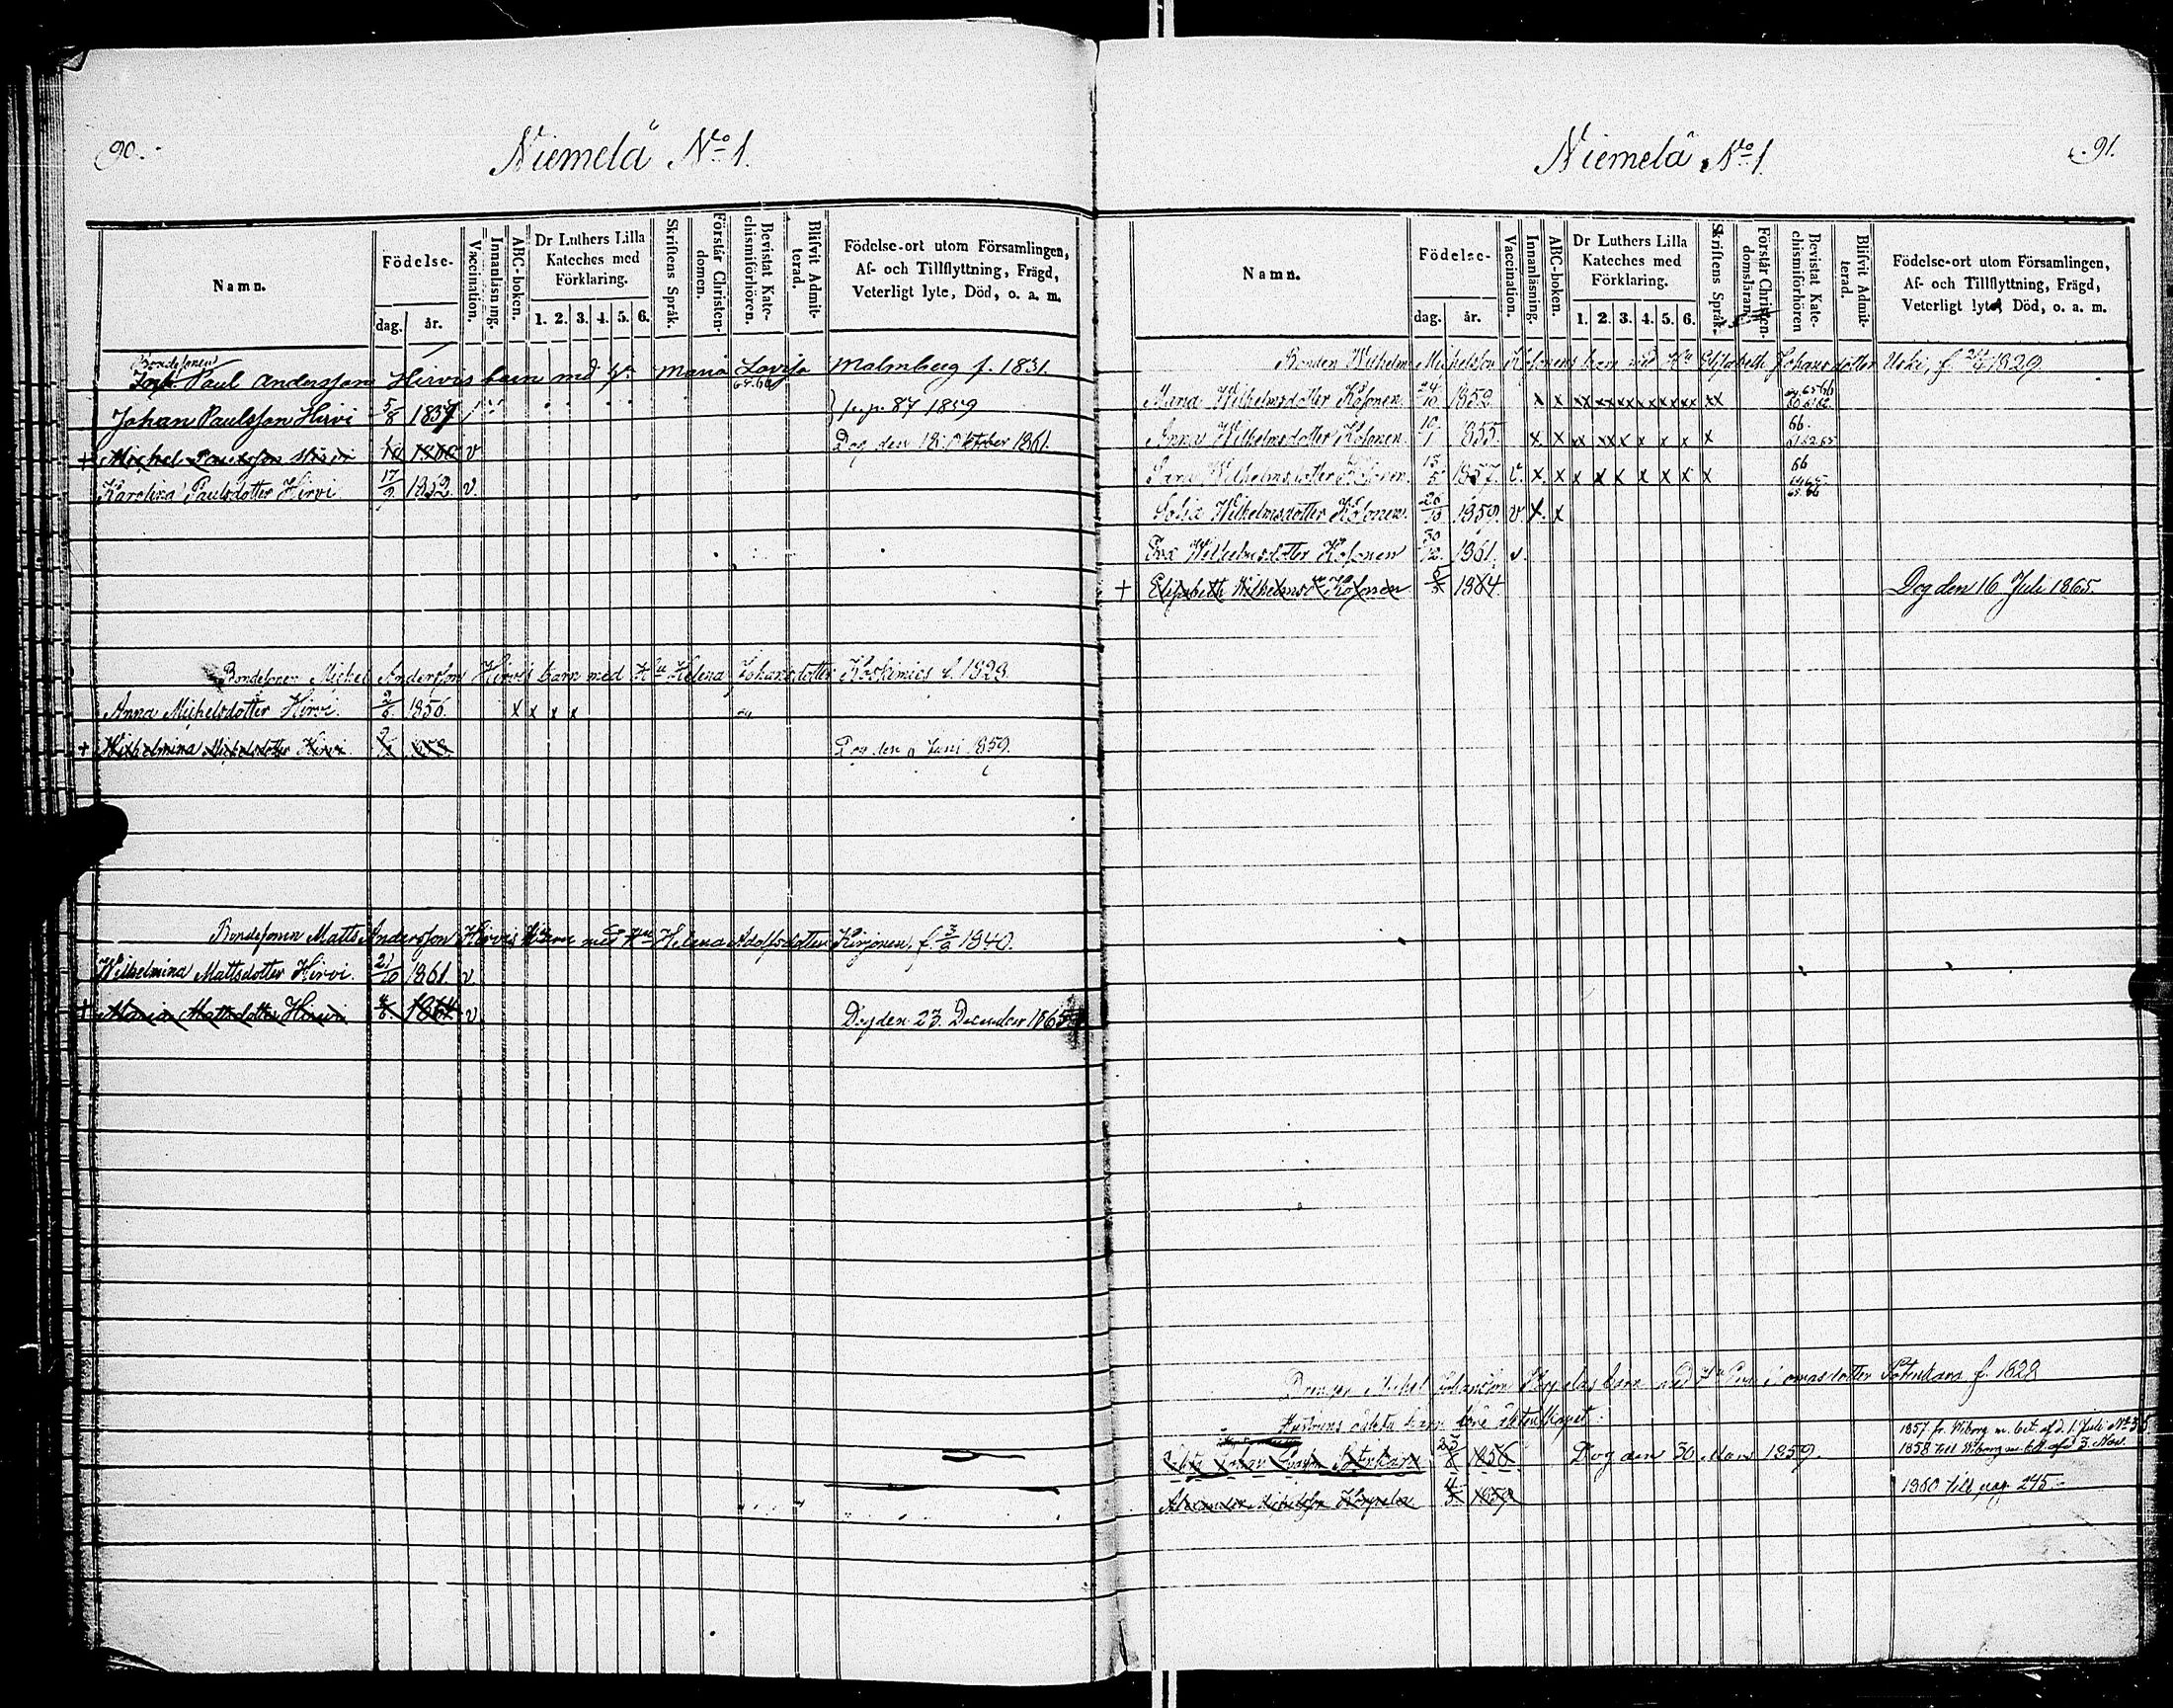 90.
Niemelä No 1.
Namn.
Födelse-
dag. år.
Vaccination.
Innanläsning.
ABC-boken.
Dr Luthers Lilla Kateches med Förklaring.
1. 2. 3. 4. 5. 6.
Skriftens Språk.
Förstår Christendomen.
Bevistat Katechismiförhören.
Blifvit Admitterad.
Födelse-ort utom Församlingen,
Af- och Tillflyttning, Frägd,
Veterligt lyte, Död, o. a. m.
Bondesonen
Paul Andersson Hirvis barn med Maria Lovisa Malmberg f. 1831.
Johan Paulsson Hirvi 5/8 1857 87 1859
+ Michel Paulsson Hirvi v Dog den 18 Oktober 1861.
Karolina Paulsdotter Hirvi 17/9 1862 v.
Bondesonen Michel Andersson Hirvis barn med Hu Helena Johansdotter Koskimies f. 1828
Anna Michelsdotter Hirvi. 2/6 1856. x x x x
+ Wilhelmina Michelsdotter Hirvi Dog den 9 Juni 1859.
Bondesonen Matts Andersson Hirvis barn med Hu Helena Adolfsdotter Kirjonen, f. 3/9 1840.
Wilhelmina Mattsdotter Hirvi. 21/10 1861. v
+ Maria Mattsdotter Hirvi 4/8 1864 v Dog den 23. December 1865
91.
Niemelä No 1.
Namn.
Födelse-
dag. år.
Vaccination.
Innanläsning.
ABC-boken.
Dr Luthers Lilla Kateches med Förklaring.
1. 2. 3. 4. 5. 6.
Skriftens Språk.
Förstår Christendomsläran.
Bevistat Katechismiförhören
Blifvit Admitterad.
Födelse-ort utom Församlingen,
Af- och Tillflyttning, Frägd,
Veterligt lyte, Död, o. a. m.
Bonden Wilhelm Michelsson Kosonens barn med Hu Elisabeth Johansdotter Uski, f. 1829
Maria Wilhelmsdotter Kosonen. 24/10 1852 x x xx xx xx xx xx xx xx
Anna Wilhelmsdotter Kosonen. 10/1 1855. x x xx xx x x x x x 66.
Sara Wilhelmsdotter Kosonen. 15/5 1857. v. x x x x x x x x x 66
Sofia Wilhelmsdotter Kosonen. 26/10 1859. v. x. x
Eva Wilhelmsdotter Kosonen 30/12 1861. v.
+ Elisabeth Wilhelmsdr Kosonen 5/3 1864. Dog den 16 Juli 1865.
Drengen Michel Johansson barn med Hu Eva Tomasdotter f. 1828
Hustruns oäkta barn före äktenskapet:
1857 fr. Wiborg m. bet. af d. 1. Juli No 35
Johan 23/8 1856 Dog den 30 Mars 1859. 1858 till Wiborg m. bet. af d. 3. Nov.
Alexander Michelsson 1859 1860 till pag. 245.